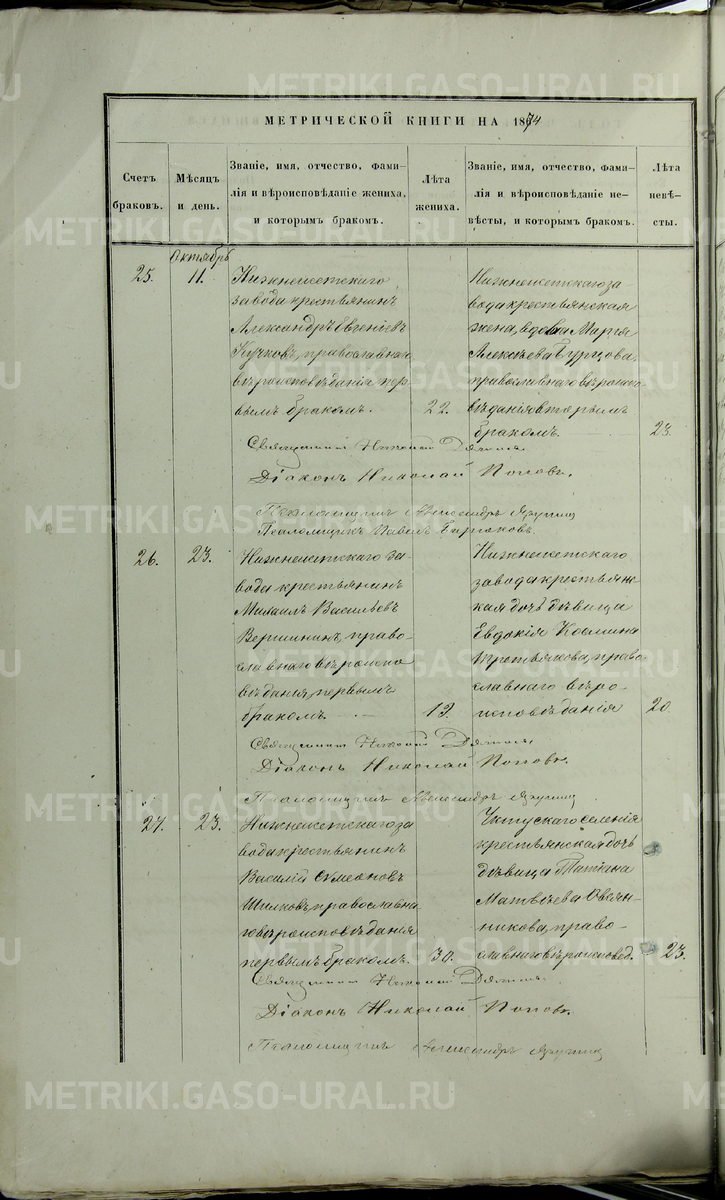 МЕТРИЧЕСКОЙ КНИГИ НА 1874
Счетъ браковъ.
Мѣсяцъ и день.
Званіе, имя, отчество, фами-
лія и вѣроисповѣданіе жениха,
и которымъ бракомъ.
Лѣта жениха.
Званіе, имя, отчество, фами-
лія и вѣроисповѣданіе не-
вѣсты, и которымъ бракомъ.
Лѣта невѣ-
сты.
Октябрь
25.
11.
Нижнеисетскаго
завода крестьянинъ
Александръ Евгеніевъ
Кучковъ, православнаго
вѣроисповѣданія пер
вымъ бракомъ.
22.
Нижнеисетскаго за
вода крестьянская
жена, вдова Марья
Алексѣева Бурцова,
православнаго вѣроиспо
вѣданія вторымъ
бракомъ.
23.
Священникъ Николай
Діаконъ Николай Поповъ.
Псаломщикъ Александръ
Псаломщикъ Павелъ
26.
23.
Нижнеисетскаго за-
вода крестьянинъ
Михаилъ Васильевъ
Вершининъ, право-
славнаго вѣроиспо
вѣданія, первымъ
бракомъ.
19.
Нижнеисетскаго
завода крестьянс
кая дочь дѣвица
Евдокія Космина
православнаго вѣро
исповѣданія
20.
Священникъ Николай
Діаконъ Николай Поповъ.
Псаломщикъ Александръ
27.
23.
Нижнеисетскаго за
вода крестьянинъ
Василій Симеоновъ
Шилковъ, православна
го вѣроисповѣданія
первымъ бракомъ.
30.
селенія
крестьянская дочь
дѣвица Татіана
Матвѣева Овсян-
никова, право-
славнаго вѣроисповѣд.
23.
Священникъ Николай
Діаконъ Николай Поповъ.
Псаломщикъ Александръ
METRIKI.GASO-URAL.RU